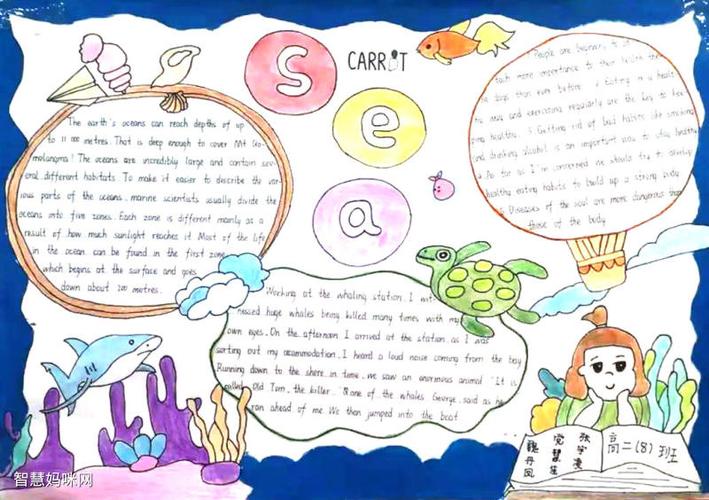 S
e
a
CARROT
The earth's oceans can reach depths of up
to 11 000 metres. That is deep enough to cover Mt Qo-
molangma! The oceans are incredibly large and contain sev-
eral different habitats. To make it easier to describe the var-
ious parts of the oceans, marine scientists usually divide the
oceans into five zones. Each zone is different mainly as a
result of how much sunlight reaches it. Most of the life
in the ocean can be found in the first zone,
which begins at the surface and goes
down about 200 metres.
People are beginning to
each more importance to their health
days than ever before. Eating in a healt
and exercising regularly are the key to
ping healthy. Getting rid of bad habits like smoking
and drinking alcohol is an important way to stay healthy
As far as I'm concerned we should try to develop
healthy eating habits to build up a strong body
Diseases of the soul are more dangerous than
those of the body
Working at the whaling station, I wit-
nessed huge whales being killed many times with my
own eyes. On the afternoon I arrived at the station, as I was
sorting out my accommodation, I heard a loud noise coming from the bay
Running down to the shore in time, we saw an enormous animal "It is
called Old Tom, the killer." one of the whales George, said as he
ran ahead of me. We then jumped into the boat
魏丹凤
党慧生
张宇
高二(8)班
智慧妈咪网